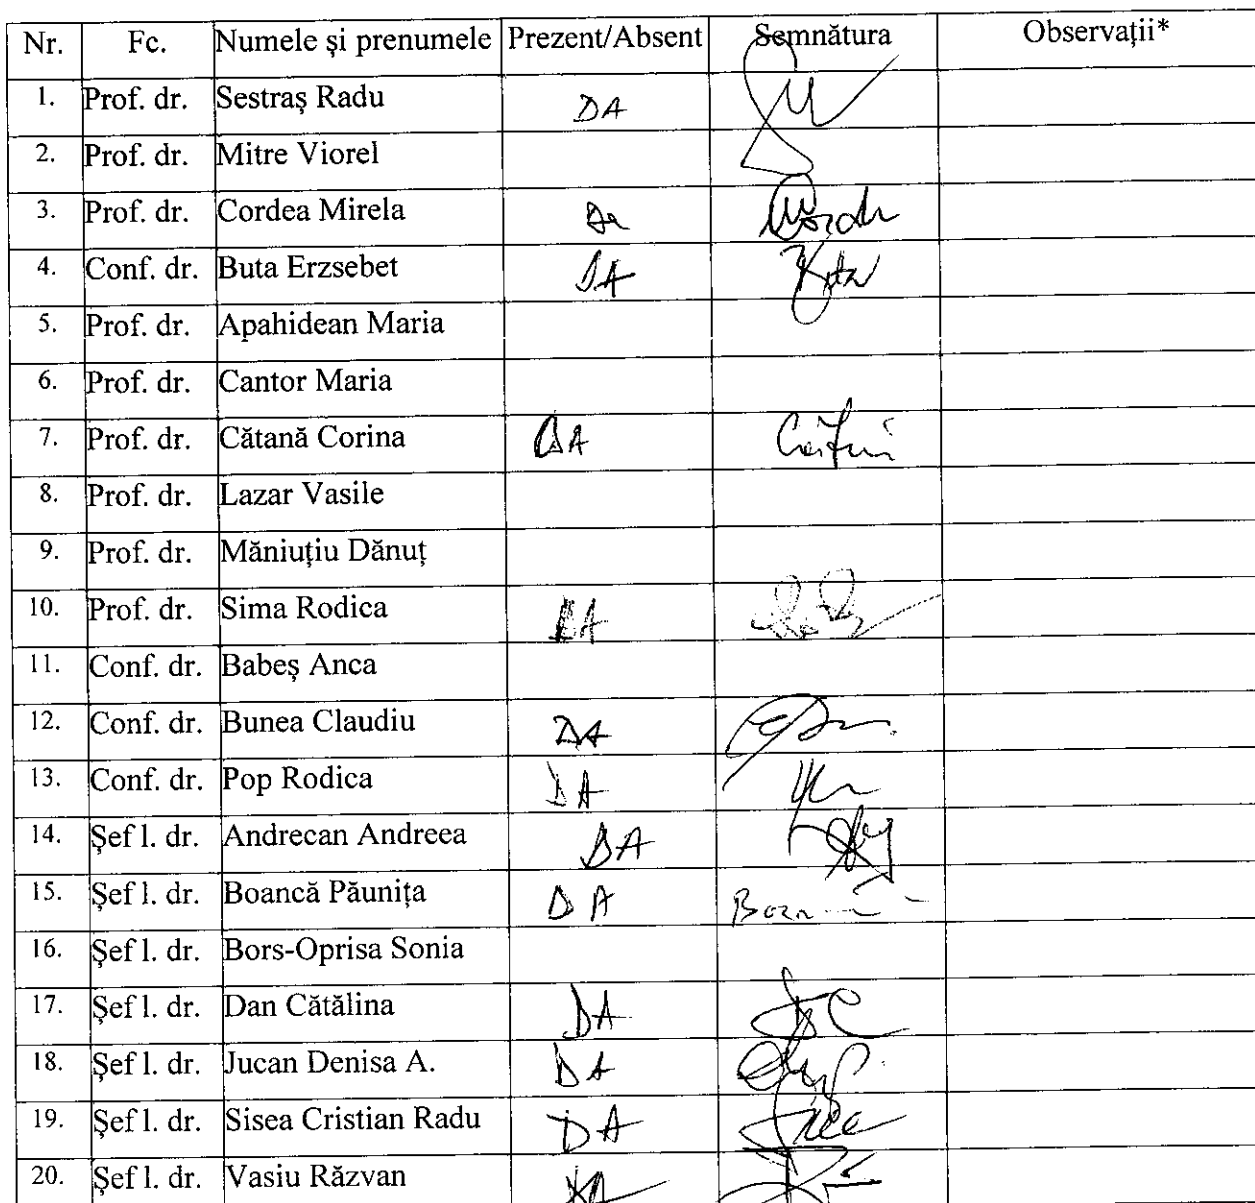 Nr. Fc. Numele și prenumele Prezent/Absent Semnătura Observații*
1. Prof. dr. Sestraș Radu DA
2. Prof. dr. Mitre Viorel
3. Prof. dr. Cordea Mirela Da
4. Conf. dr. Buta Erzsebet DA
5. Prof. dr. Apahidean Maria
6. Prof. dr. Cantor Maria
7. Prof. dr. Cătană Corina DA
8. Prof. dr. Lazar Vasile
9. Prof. dr. Măniuțiu Dănuț
10. Prof. dr. Sima Rodica DA
11. Conf. dr. Babeș Anca
12. Conf. dr. Bunea Claudiu DA
13. Conf. dr. Pop Rodica DA
14. Șef l. dr. Andrecan Andreea DA
15. Șef l. dr. Boancă Păunița DA
16. Șef l. dr. Bors-Oprisa Sonia
17. Șef l. dr. Dan Cătălina DA
18. Șef l. dr. Jucan Denisa A. DA
19. Șef l. dr. Sisea Cristian Radu DA
20. Șef l. dr. Vasiu Răzvan DA